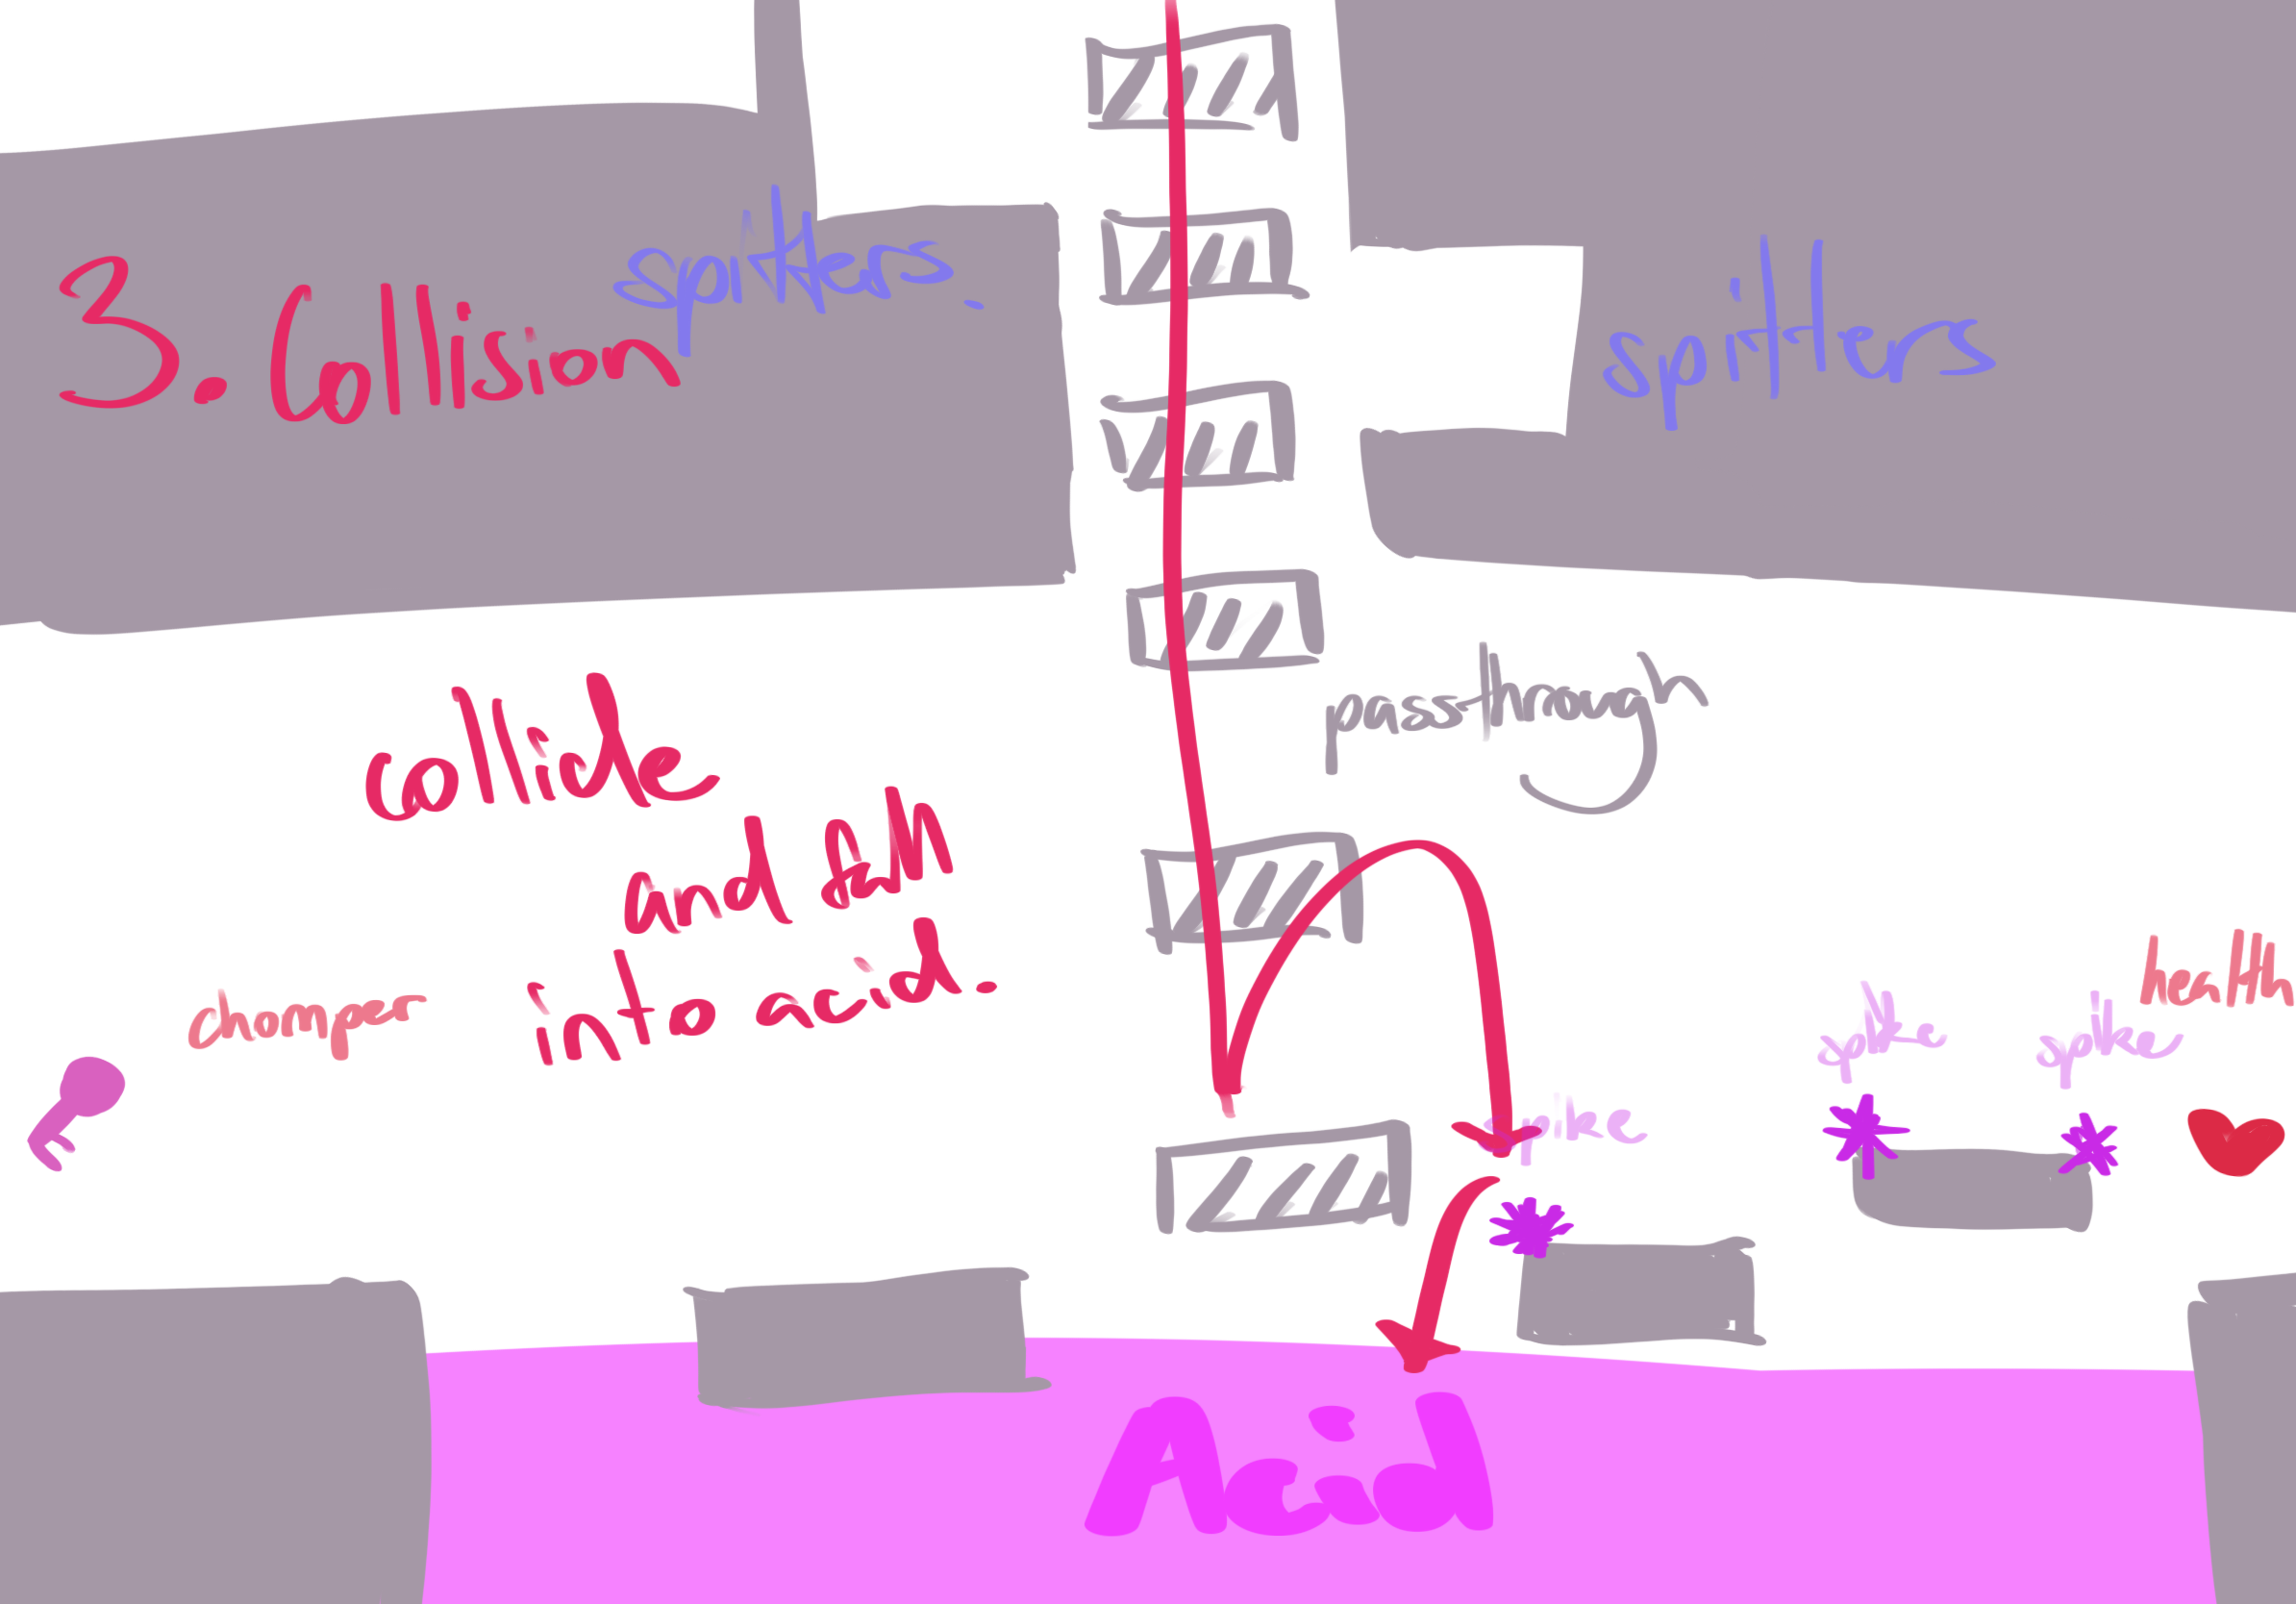 3. Collision
spitters.
spitters
passthrough
collide
and fall
into acid.
chomper
health
spike
spike
spike
Acid